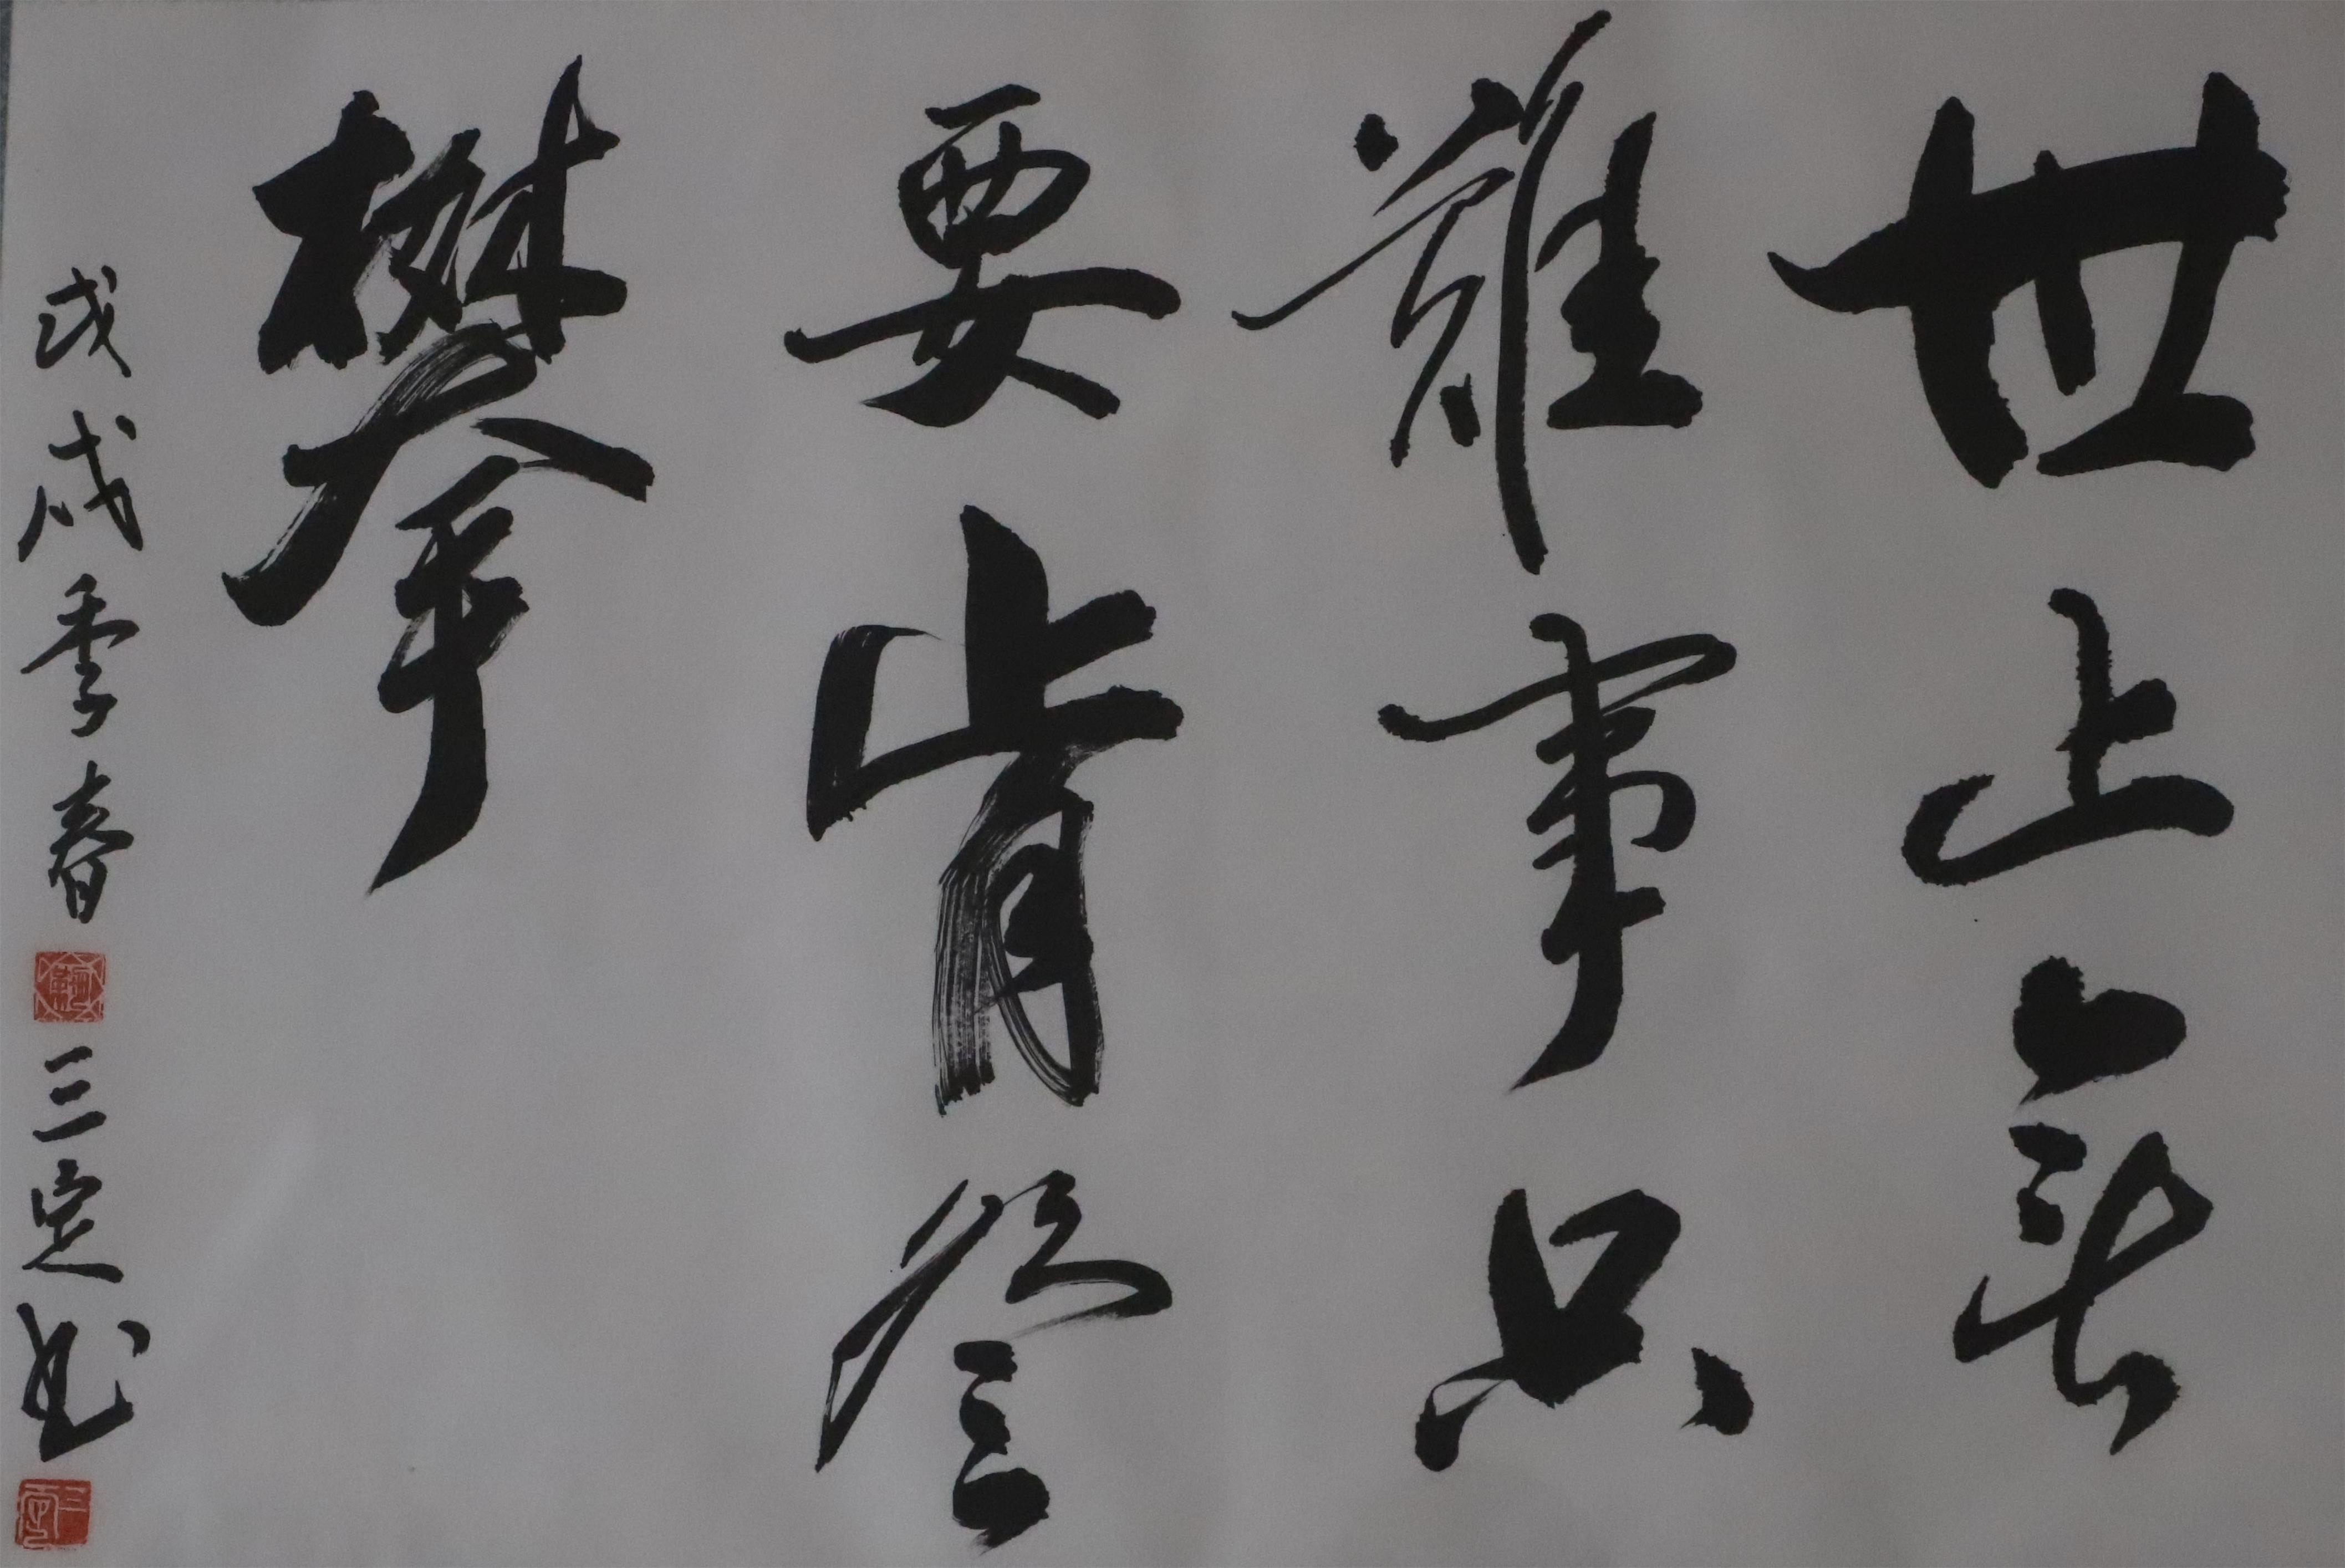 世上無
難事只
要肯登
攀
戊戌季春
三定书